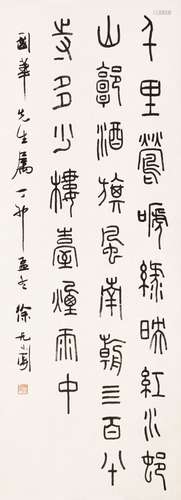 千里鶯嗁綠映紅水邨
山郭酒旗風南朝亖百八十
寺多少樓臺煙雨中
國華先生屬丁卯孟冬徐无聞